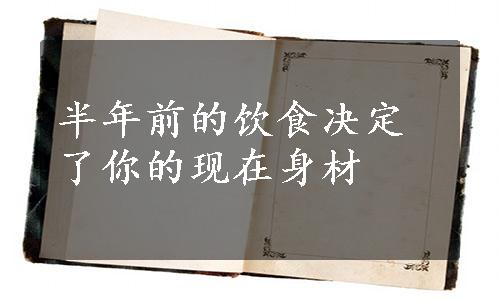 半年前的饮食决定
了你的现在身材